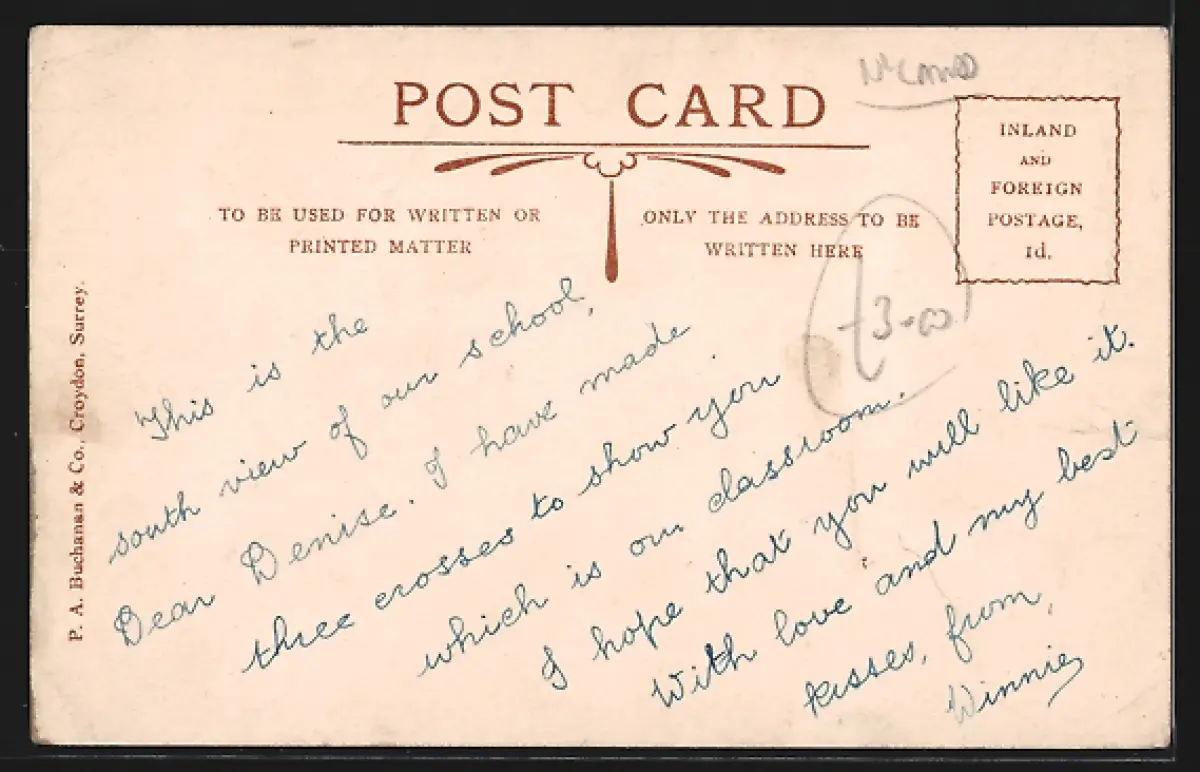 POST CARD
INLAND
AND
FOREIGN
POSTAGE,
1d.
TO BE USED FOR WRITTEN OR
PRINTED MATTER
ONLY THE ADDRESS TO BE
WRITTEN HERE
P. A. Buchanan & Co., Croydon, Surrey.
£3-00
This is the
south view of our school,
Dear Denise. I have made
three crosses to show you
which is our classroom.
I hope that you will like it.
With love and my best
kisses, from,
Winnie